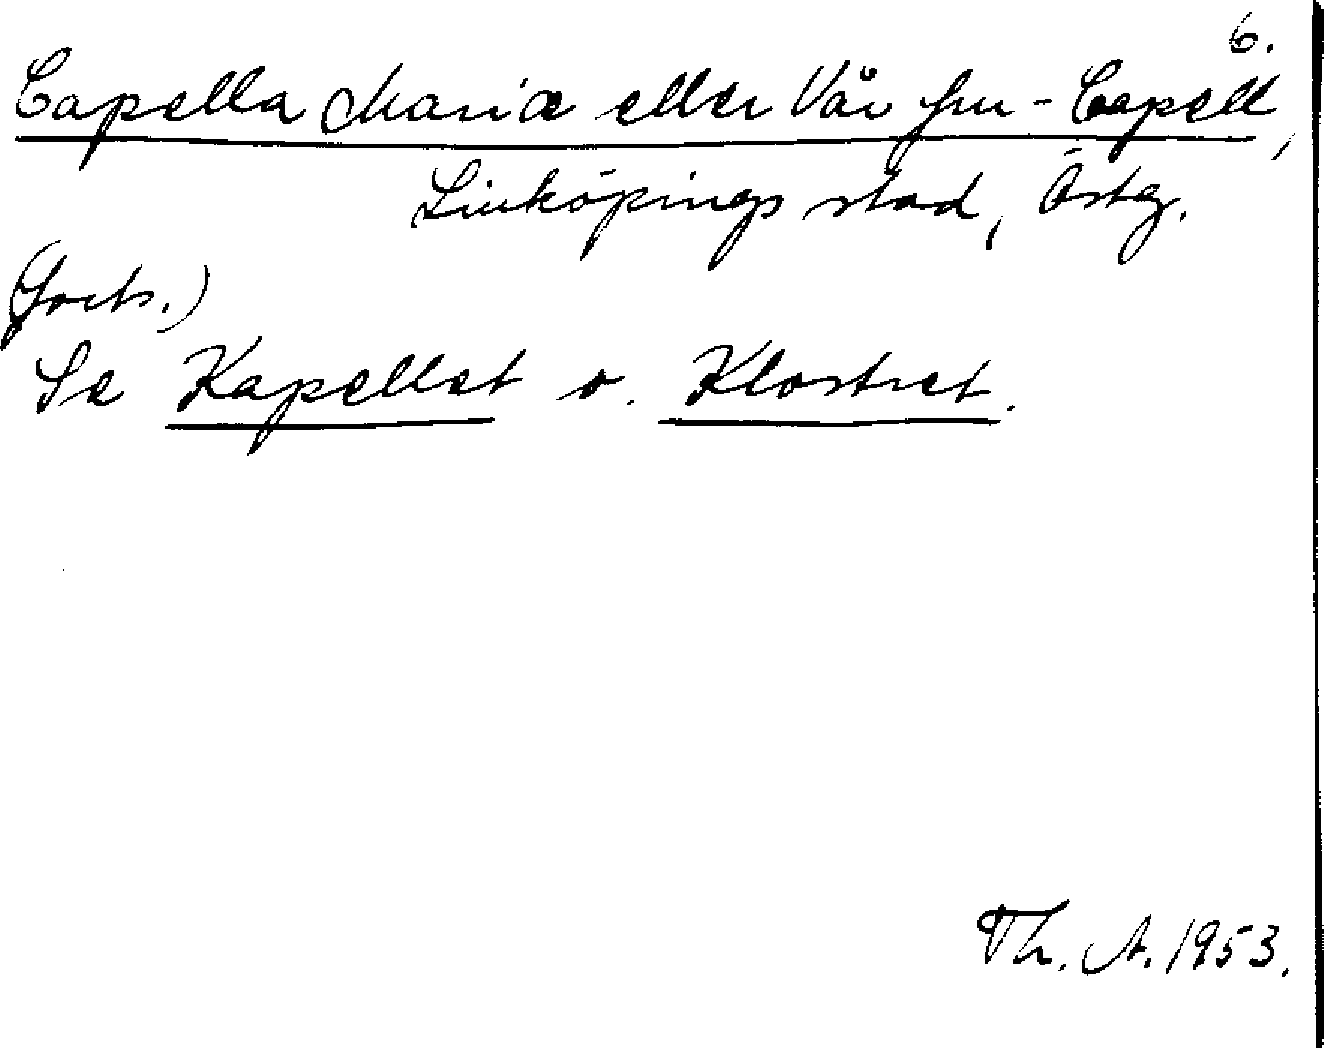 6.
Capella Mariæ eller Vår fru-Capell,
Linköpings stad, Östg.
(Forts.)
Se Kapellet o. Klostret.
Th. A. 1953.